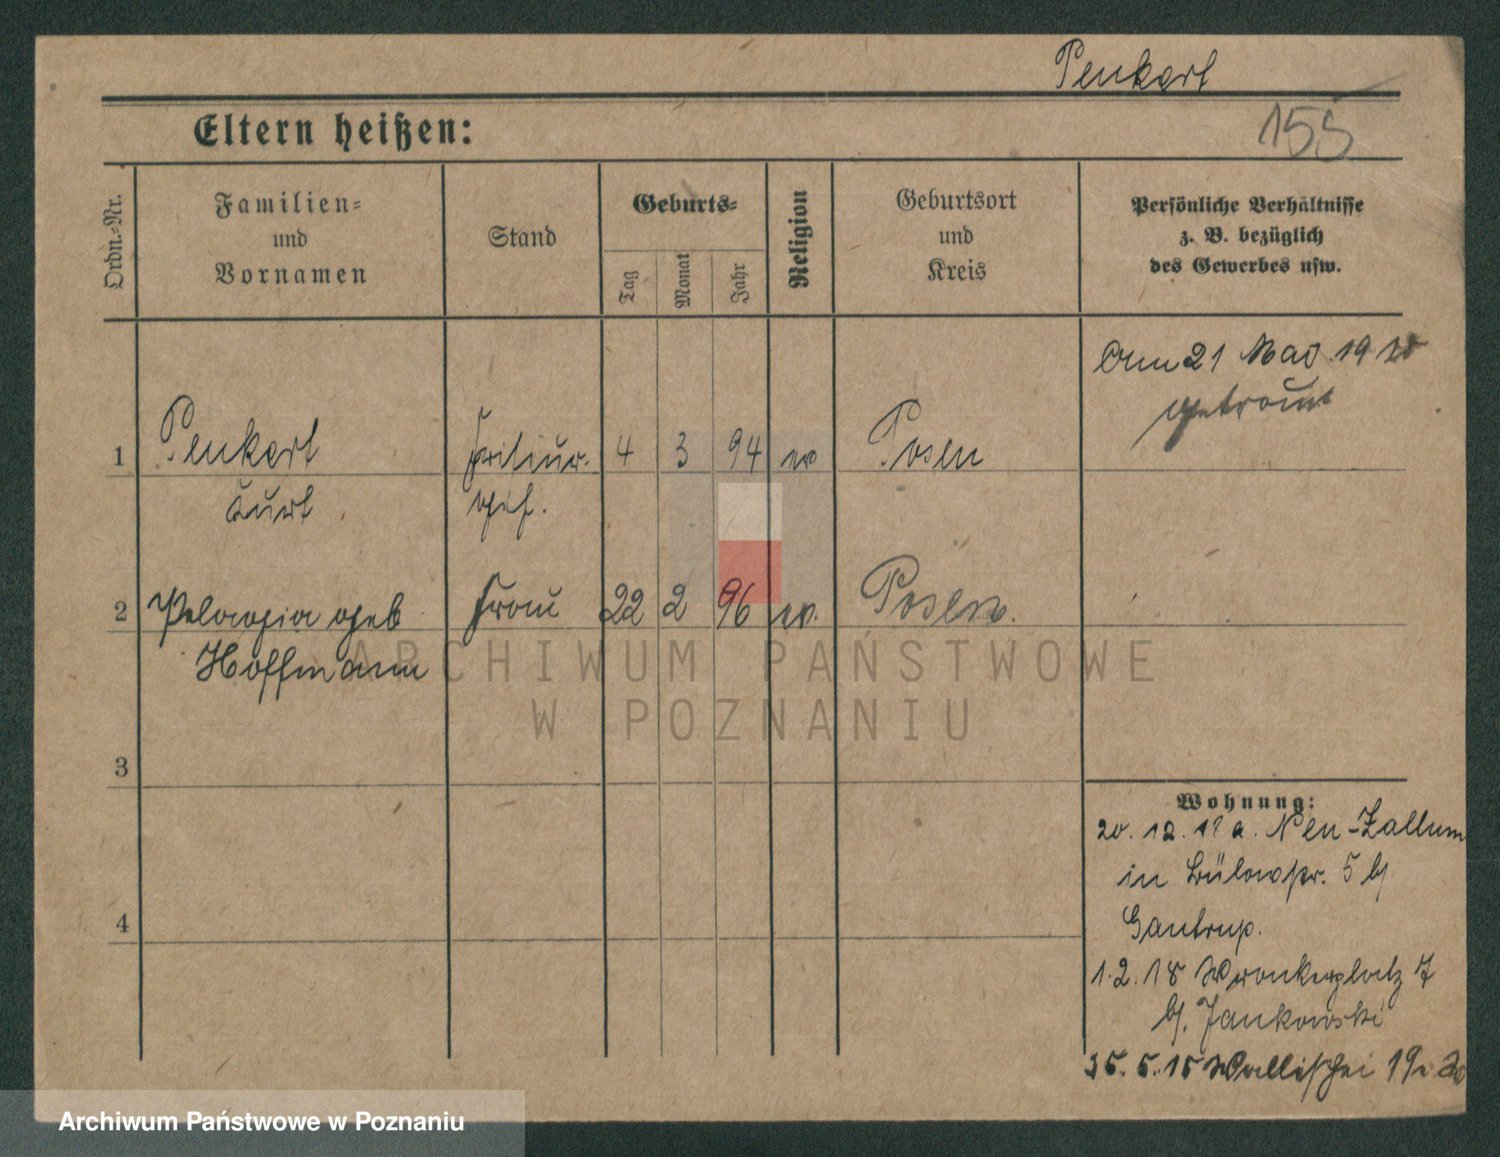 Penkert
155
Eltern heißen:
Ordn.-Nr.
Familien-
und
Vornamen
Stand
Geburts-
Tag
Monat
Jahr
Religion
Geburtsort
und
Kreis
Persönliche Verhältnisse
z. B. bezüglich
des Gewerbes usw.
Am 21 Mai 19
getraut
1 Penkert Friseur- 4 3 94 ev Posen
Kurt geh.
2 Pelagia geb Frau 22 2 96 ev. Posen.
Hoffmann
3
4
Wohnung:
20. 12. 18 a. Neu-Zattum
in Bülowstr. 5 b/
Gantrup.
1. 2. 18 Wronkerplatz 7
b/. Jankowski
25. 5. 18 Wallischei 19
ARCHIWUM PAŃSTWOWE
W POZNANIU
Archiwum Państwowe w Poznaniu